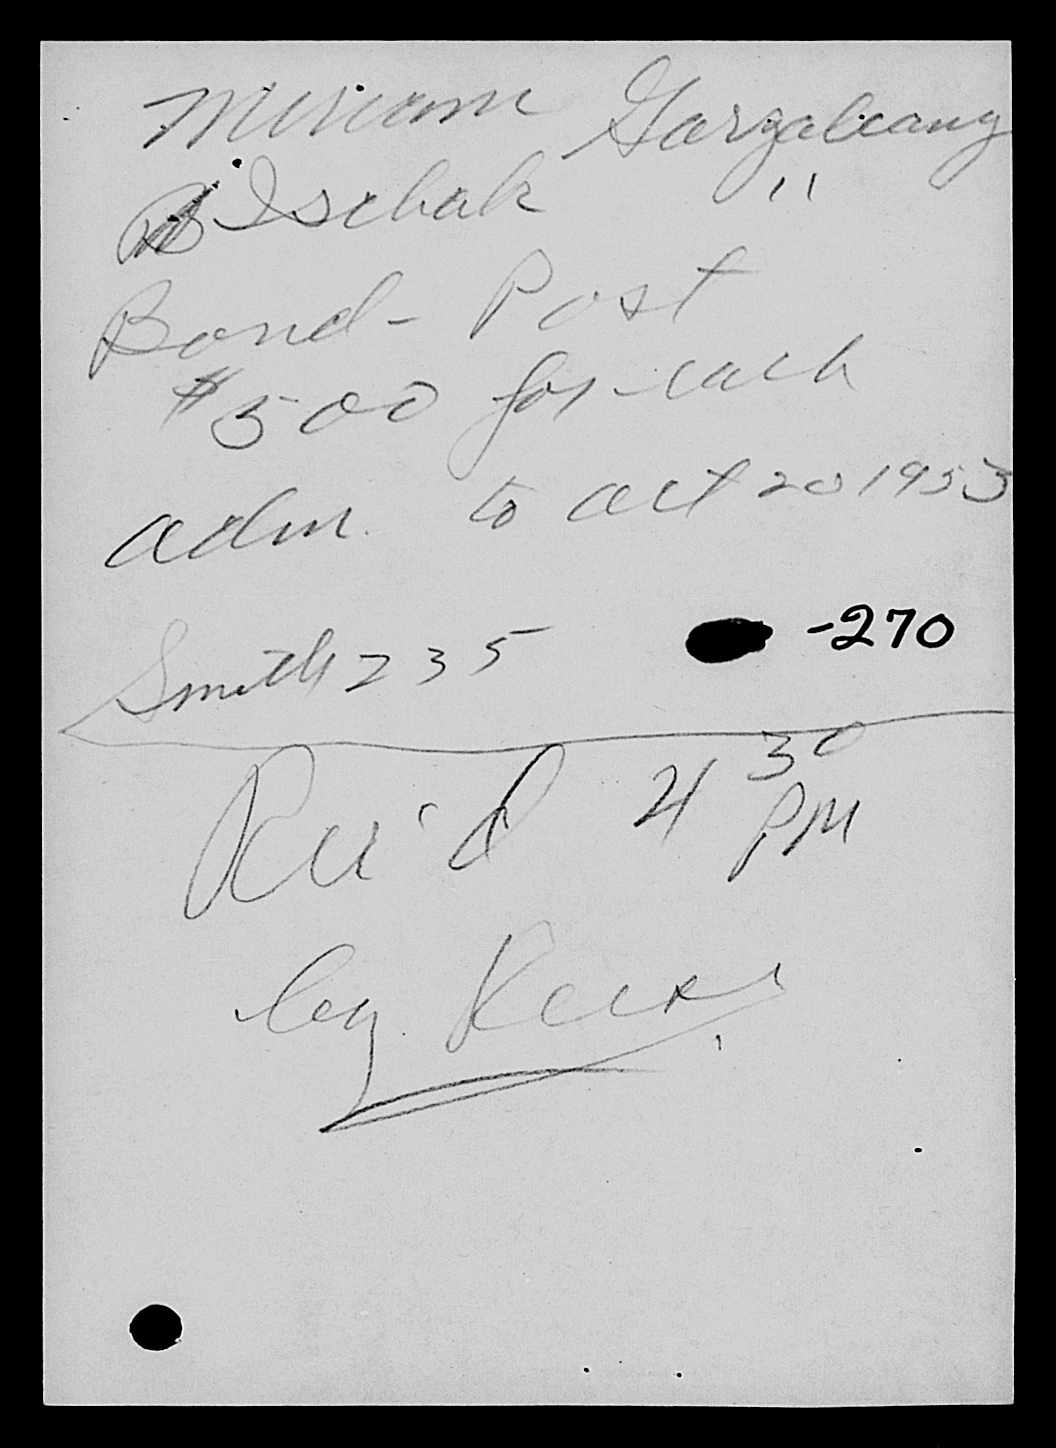 Miriam Garzalieany
Ischak "
Bond - Post
$500 for each
adm. to Oct 20 1953
Smith 235 -270
Rec'd 4 30 PM
by